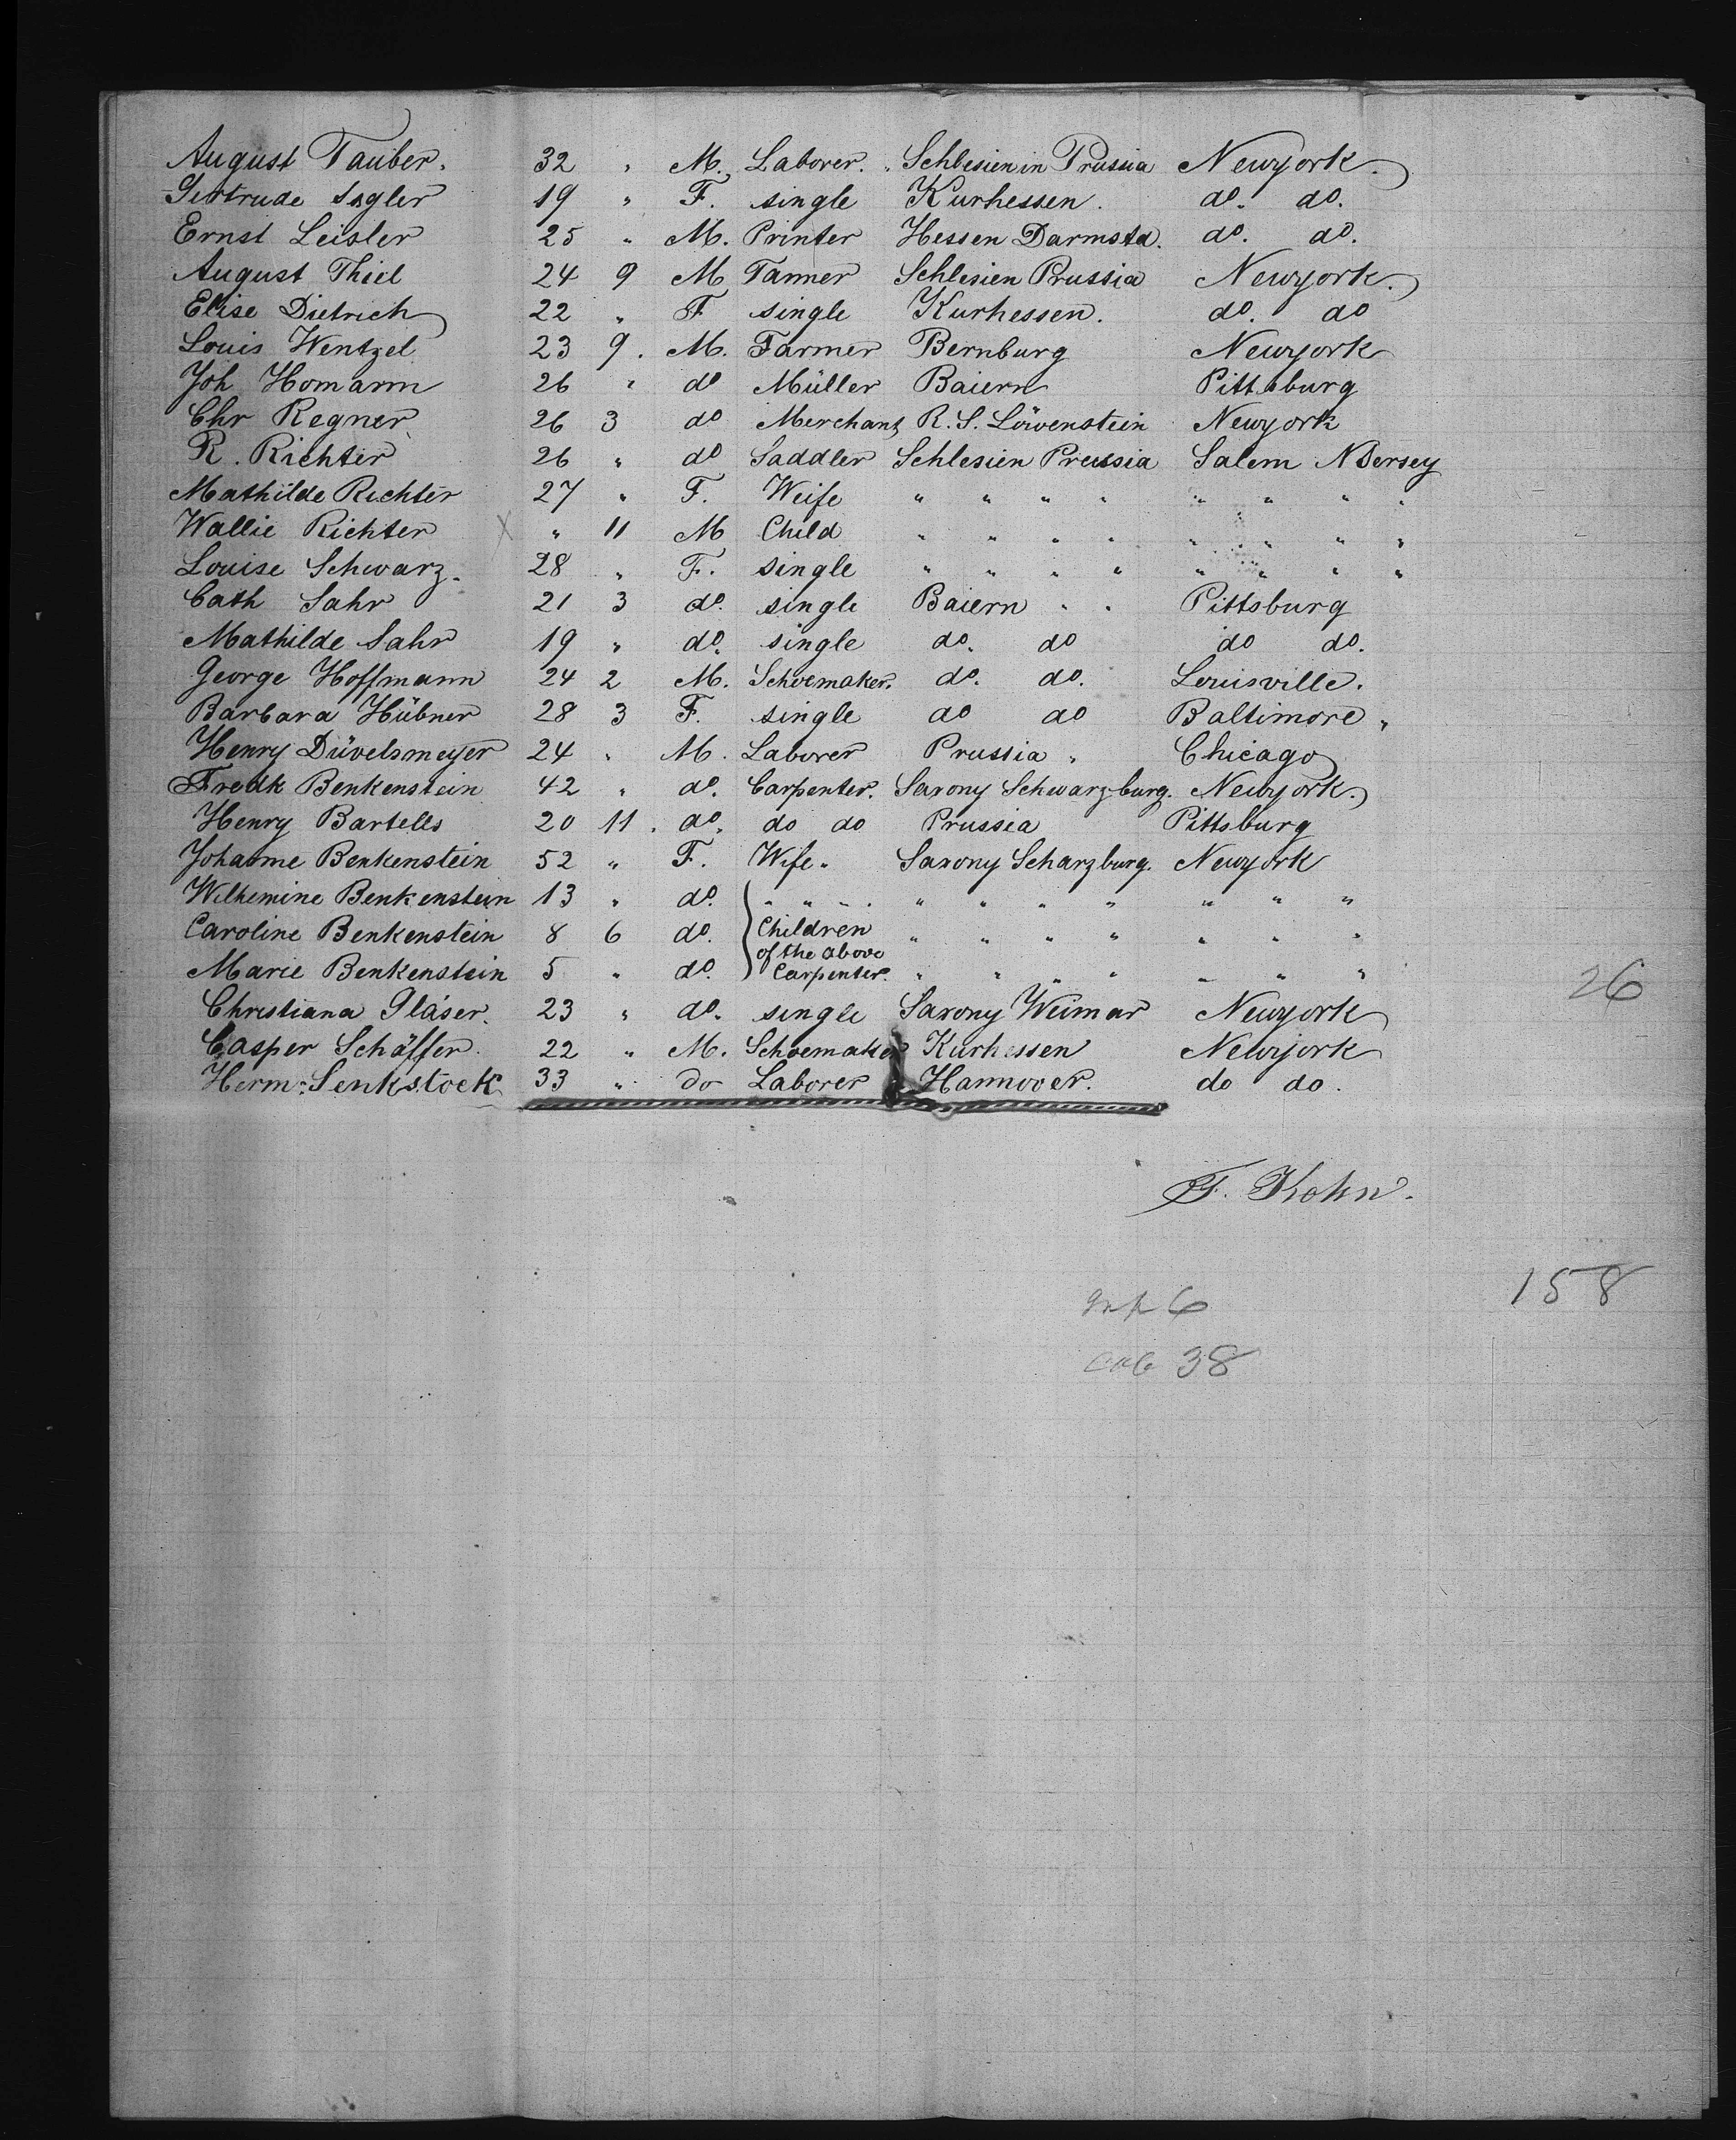 August Tauber. 32 " M. Laborer. " Schlesien in Prussia Newyork.
Gertrude Sagler 19 " F. single Kurhessen. do. do.
Ernst Leisler 25 " M. Printer Hessen Darmstd. do. do.
August Thiel 24 9 M Tanner Schlesien Prussia Newyork.
Elise Dietrich 22 " F single Kurhessen. do. do
Louis Wentzel 23 9. M. Farmer Bernburg Newyork
Joh Homann 26 " do Müller Baiern Pittsburg
Chr Regner 26 3 do Merchant R. S. Löwenstein Newyork
R. Richter 26 " do Saddler Schlesien Preussia Salem N Dersey
Mathilde Richter 27 " F. Weife " " " " " " " "
Wallie Richter X " 11 M Child " " " " " " " "
Louise Schwarz. 28 " F. single " " " " " " " "
Cath Sahr 21 3 do. single Baiern " " Pittsburg
Mathilde Sahr 19 " do. single do. do do do.
George Hoffmann 24 2 M. Schoemaker. do. do. Louisville.
Barbara Hübner 28 3 F. single do do Baltimore "
Henry Düvelsmeyer 24 " M. Laborer Prussia " Chicago
Fredk Benkenstein 42 " do. Carpenter. Saxony Schwarzburg. Newyork.
Henry Bartells 20 11. do. do do Prussia Pittsburg
Johanne Benkenstein 52 " F. Wife " Saxony Scharzburg. Newyork
Wilhemine Benkenstein 13 " do. " " " " " " " " " " "
Caroline Benkenstein 8 6 do. Children " " " " " " "
of the above
Marie Benkenstein 5 " do. Carpenter. " " " " " " "
26
Christiana Gläser. 23 " do. single Saxony Weimar Newyork
Casper Schäffer. 22 " M. Schoemaker Kurhessen Newyork
Herm: Senkstock 33 " do Laborer Hannover. do do.
F. Kohn.
158
6
cab 38